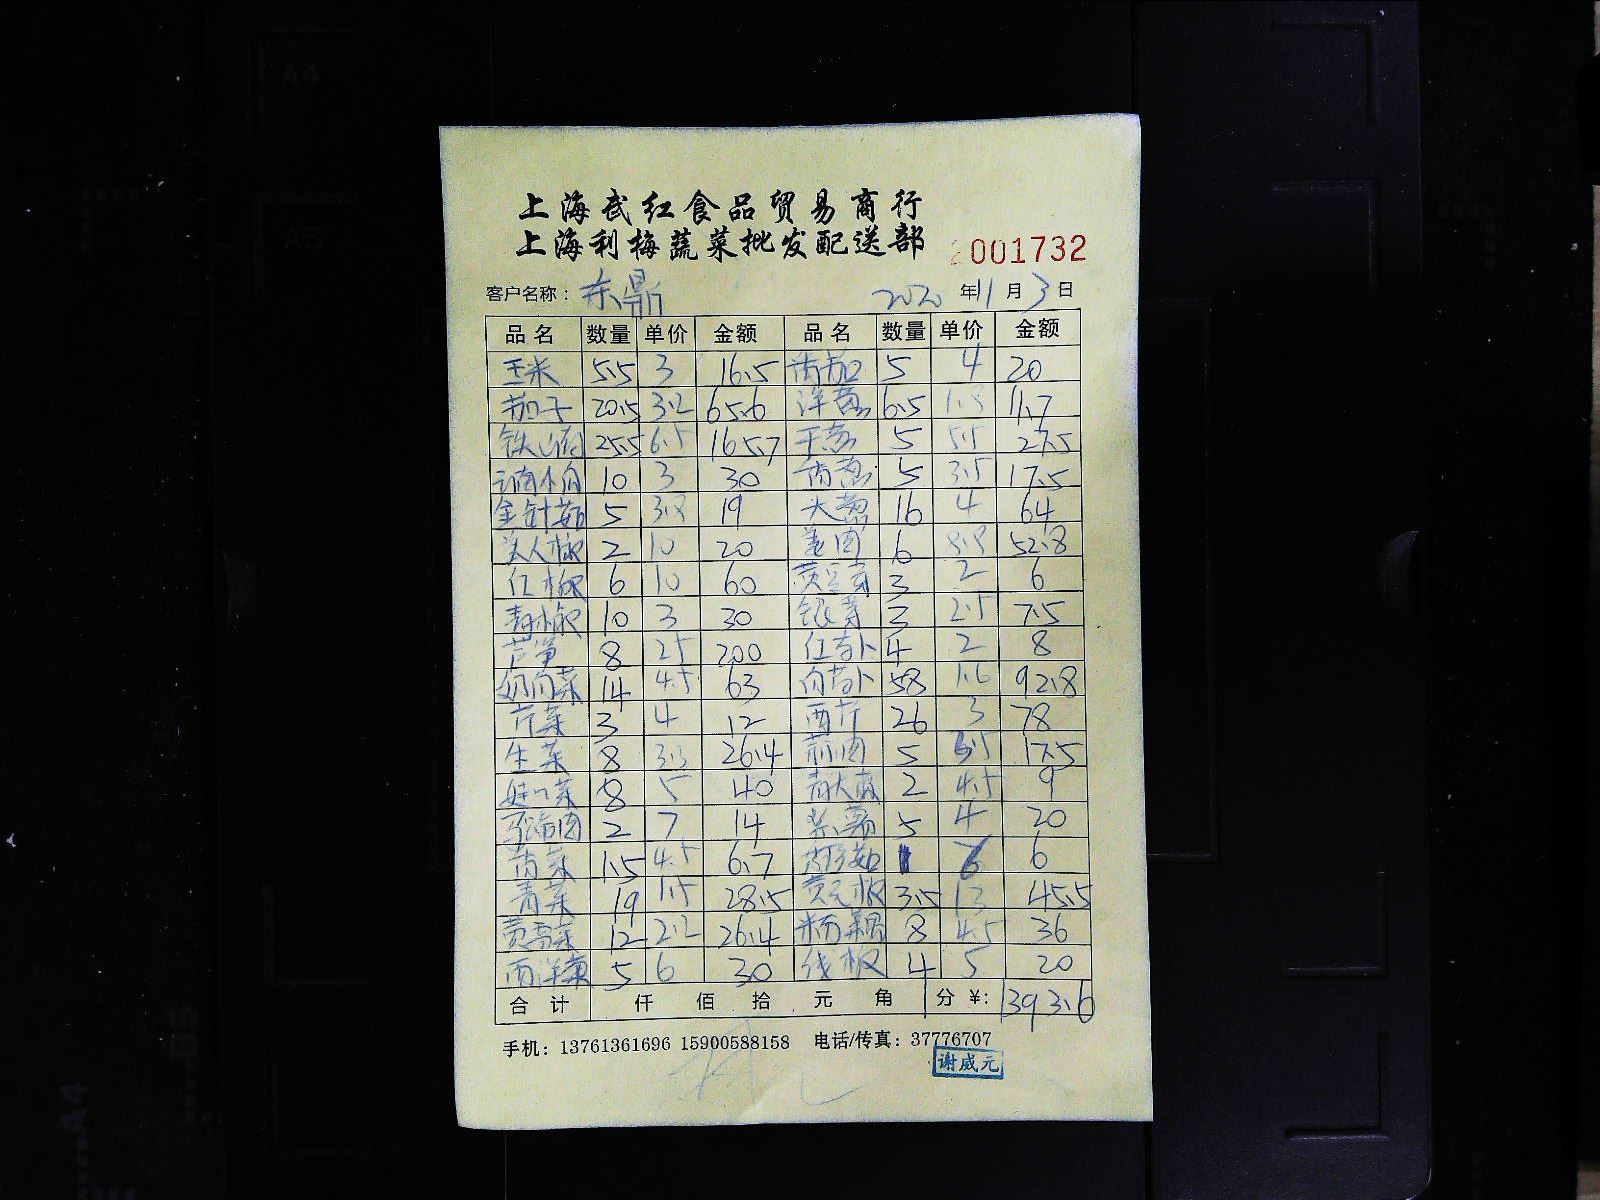 上海武红食品贸易商行
上海利梅蔬菜批发配送部 001732
客户名称：东鼎 2020年11月3日
品名 数量 单价 金额 品名 数量 单价 金额
玉米 5.5 3 16.5 番茄 5 4 20
茄子 20.5 3.2 65.6 洋葱 6.5 1.8 11.7
铁山药 25.5 6.5 165.7 干葱 5 5.5 27.5
3 30 香葱 5 3.5 17.5
金针菇 5 3.8 19 大葱 16 4 64
美人椒 2 10 20 姜肉 6 8.8 52.8
红椒 6 10 60 黄豆芽 3 2 6
青椒 10 3 30 银芽 3 2.5 7.5
芦笋 8 25 200 红萝卜 4 2 8
奶白菜 14 4.5 63 白萝卜 58 1.6 92.8
芹菜 3 4 12 西芹 26 3 78
生菜 8 3.3 26.4 5 3.5 17.5
娃娃菜 8 5 40 青大蒜 2 4.5 9
马蹄肉 2 7 14 紫薯 5 4 20
1.5 4.5 6.7 1 6 6
青菜 19 1.5 28.5 3.5 13 45.5
12 2.2 26.4 8 4.5 36
西洋菜 5 6 30 线椒 4 5 20
合计 仟 佰 拾 元 角 分 ¥: 1393.6
手机：13761361696 15900588158 电话/传真：37776707
谢威元